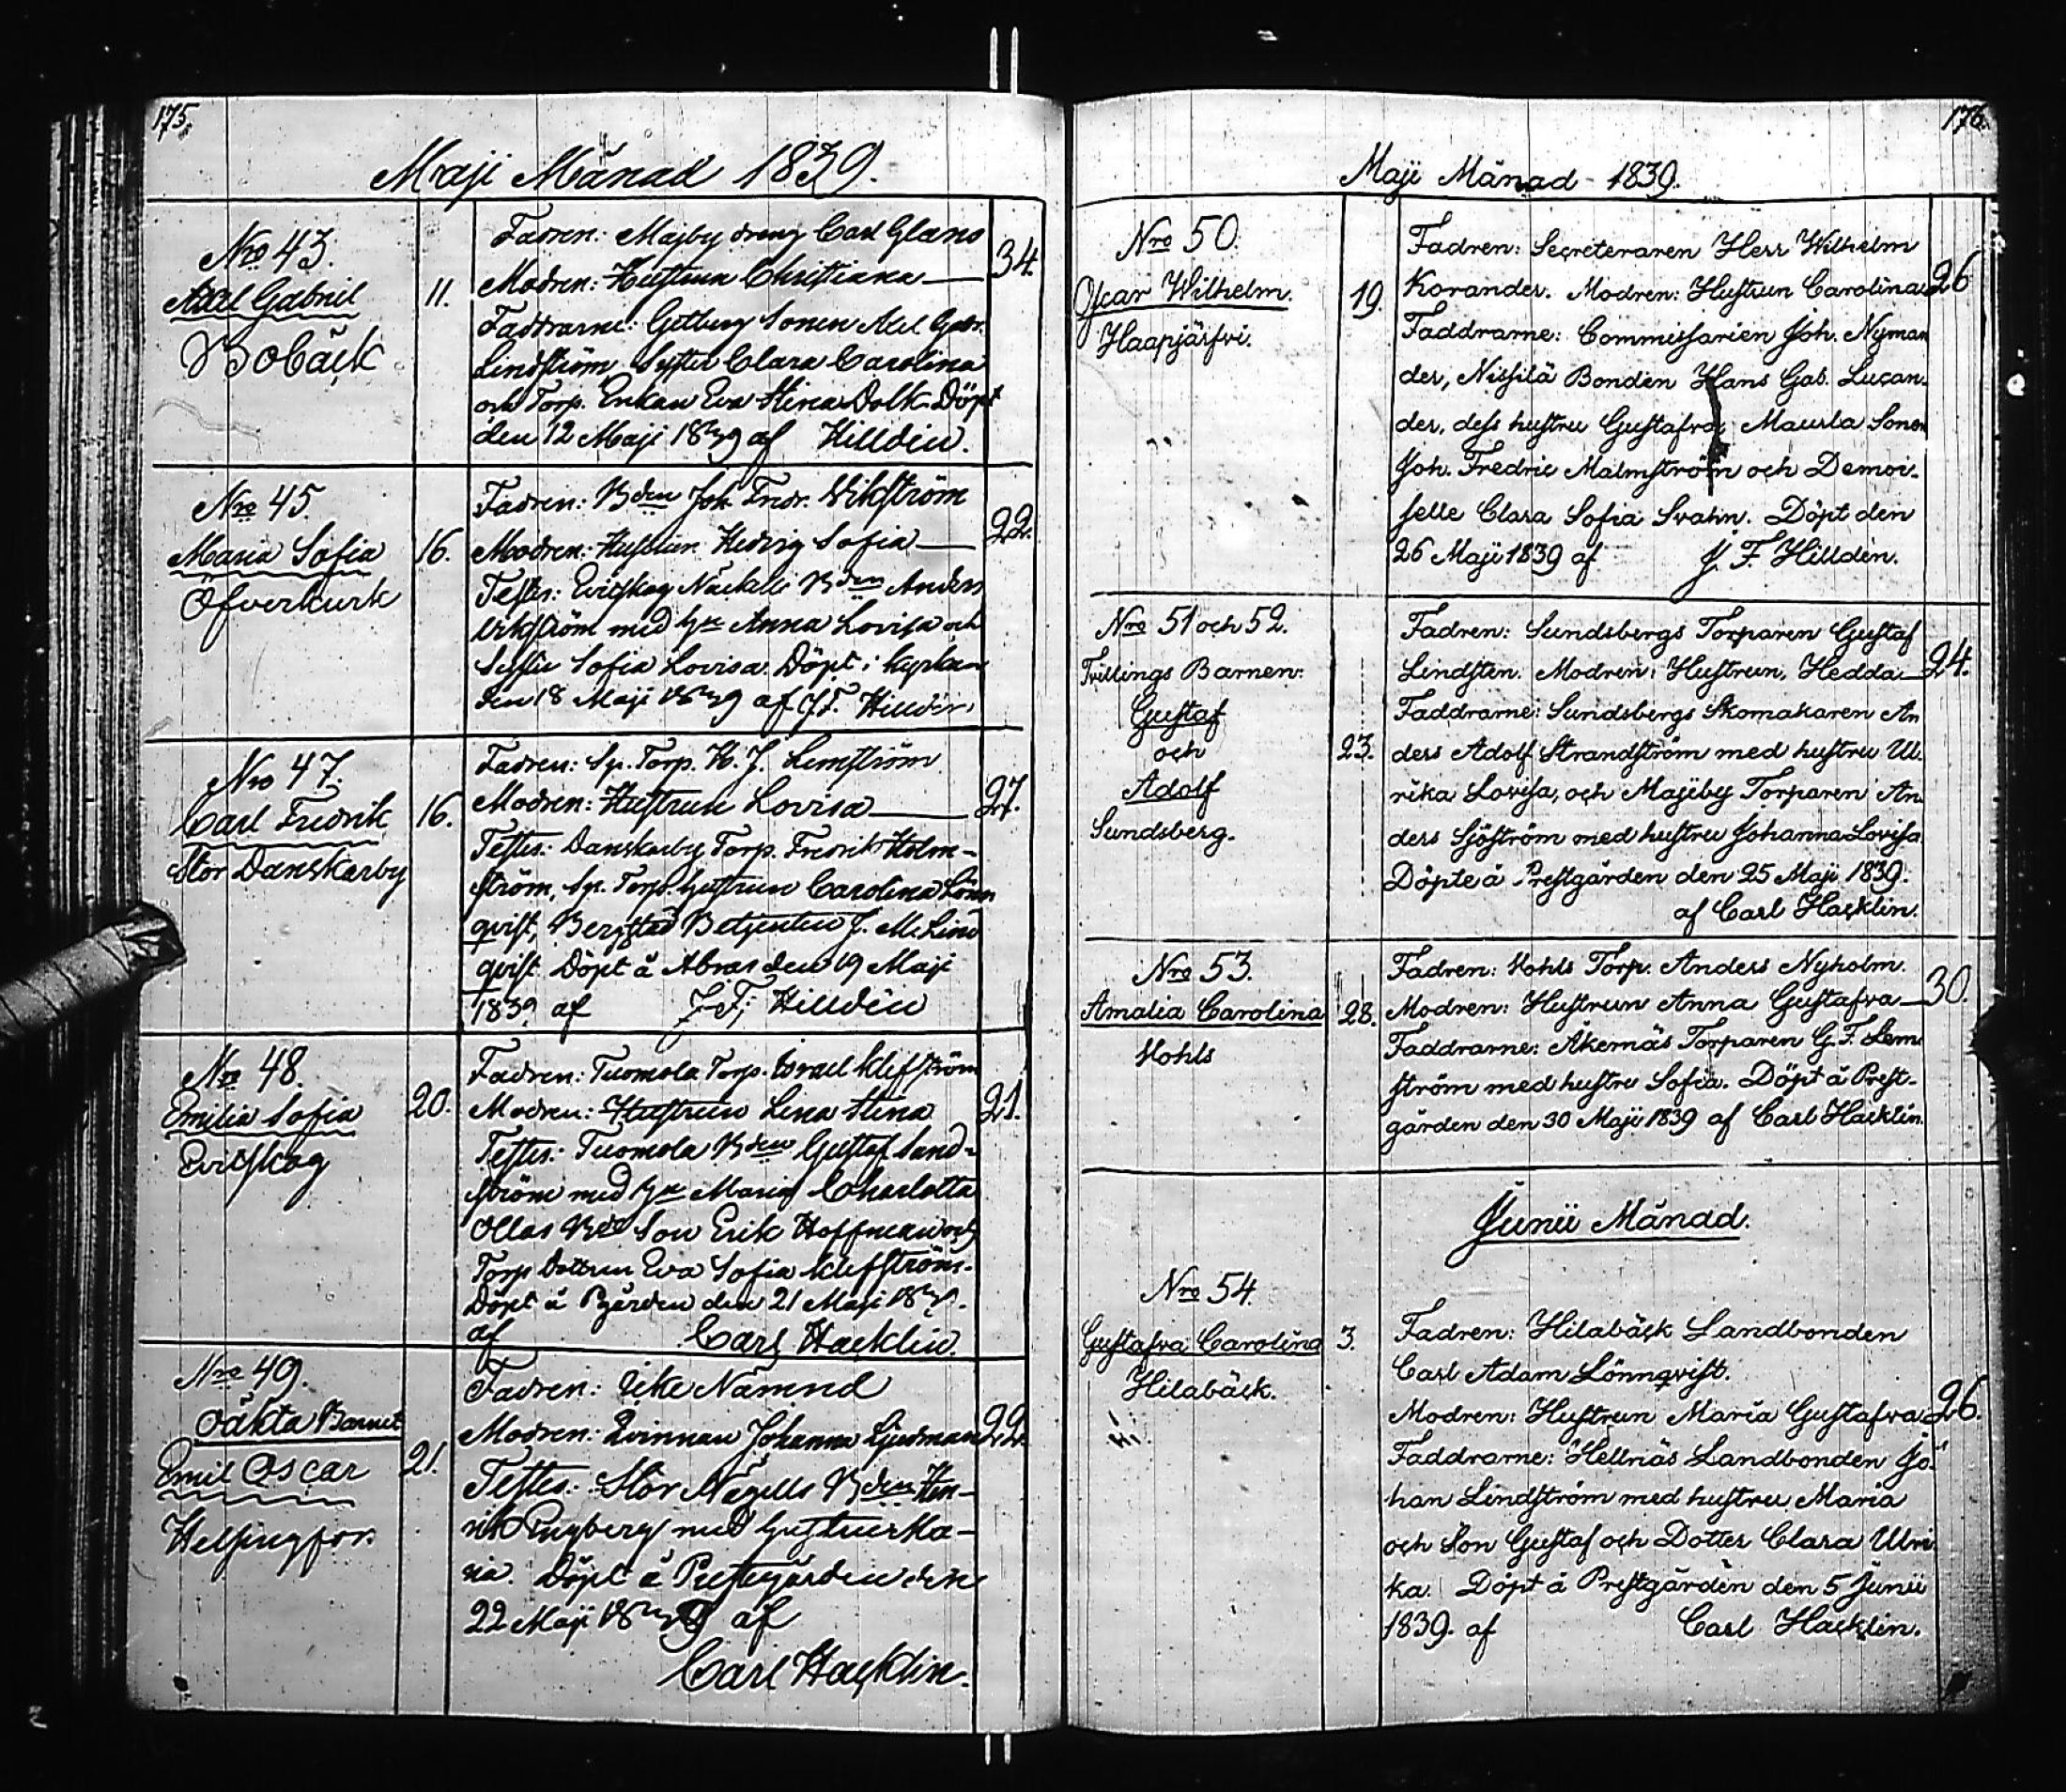 175.
Maji Månad 1839.
Nro 43.
Axel Gabriel
Bobäck
11.
Fadren: Majby dreng Carl Glans
Modren: Hustrun Christiana
34.
Faddrarne: Getberg Sonen Axel Gabr.
Lindström, Syster Clara Carolina
och Torp. Enkan Eva Stina Dolk. Döpt
den 12 Maji 1839 af Hilldén.
Nro 45.
Maria Sofia
Öfverkurk
16.
Fadren: Bden Joh. Fredr. Wikström
Modren: Hustrun Hedvig Sofia
22.
Testes: Evitskog Näckalls Bden Anders
Wikström med hu Anna Lovisa och
Syster Sofia Lovisa. Döpt i kyrkan
den 18 Maji 1839 af J.F. Hilldén.
Nro 47.
Carl Fredrik
Stor Danskarby
16.
Fadren: Sp. Torp. H. J. Lemström
Modren: Hustrun Lovisa
27.
Testes: Danskarby Torp. Fredrik Holm-
ström, Sp. Torp. hustrun Carolina Lönn
qvist, Bergstad Betjenten J. M. Lind
qvist. Döpt å den 19 Maji
1839 af J. F. Hilldén
Nro 48.
Emilia Sofia
Evitskog
20.
Fadren: Tuomola Torp. Israel Klifström
Modren: Hustrun Lena Stina
21.
Testes: Tuomola Bden Gustaf Sand-
ström med hu Maria Charlotta
Ollas Bde Son Erik Hoffman och
Torp Dottren Eva Sofia Klifström.
Döpt å Pgården den 21 Maji 1839.
af Carl Hacklin.
Nro 49.
Oäkta Barnet
Emil Oscar
Helsingfors
21.
Fadren: Icke Nämnd
Modren: Qvinnan Johanna Ljudman
22.
Testes: Stor Nägells Bden Hen-
rik Engberg med hustru Ma-
ria. Döpt å Prestgården den
22 Maji 1839 af
Carl Hacklin.
176.
Maji Månad 1839.
Nro 50.
Oscar Wilhelm.
Haapjärfvi.
19.
Fadren: Secreteraren Herr Wilhelm
Korander. Modren: Hustrun Carolina
26
Faddrarne: Commissarien Joh. Nyman
der, Nissilä Bonden Hans Gab. Lucan-
der, dess hustru Gustafva, Maurla Sonen
Joh. Fredric Malmström och Demoi-
selle Clara Sofia Svahn. Döpt den
26 Maji 1839 af J. F. Hilldén.
Nro 51 och 52.
Tvillings Barnen:
Gustaf
och
Adolf
Sundsberg.
23.
Fadren: Sundsbergs Torparen Gustaf
Lindsten. Modren: Hustrun, Hedda
24.
Faddrarne: Sundsbergs Skomakaren An
ders Adolf Strandström med hustru Ul.
rika Lovisa, och Majiby Torparen An
ders Sjöström med hustru Johanna Lovisa
Döpte å Prestgården den 25 Maji 1839.
af Carl Hacklin.
Nro 53.
Amalia Carolina
Hohls
28.
Fadren: Hohls Torp. Anders Nyholm.
Modren: Hustrun Anna Gustafva
30.
Faddrarne: Åkernäs Torparen G. F. Lem
ström med hustru Sofia. Döpt å Prest-
gården den 30 Maji 1839 af Carl Hacklin.
Junii Månad.
Nro 54.
Gustafva Carolina
Hilabäck.
3.
Fadren: Hilabäck Landbonden
Carl Adam Lönnqvist.
Modren: Hustrun Maria Gustafva
26.
Faddrarne: Hellnäs Landbonden Jo
han Lindström med hustru Maria
och Son Gustaf och Dotter Clara Ulri
ka. Döpt å Prestgården den 5 Junii
1839. af Carl Hacklin.